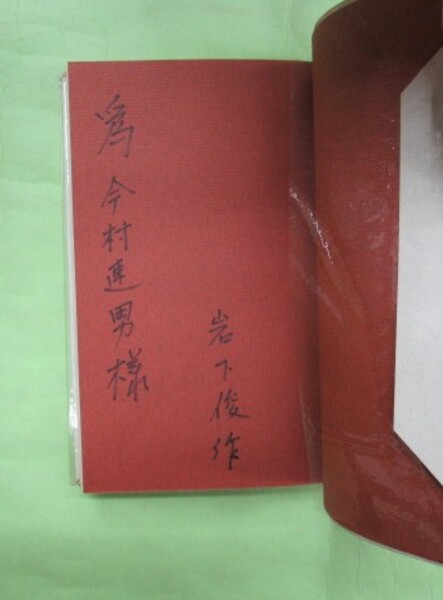 為 今村連男様
岩下俊作